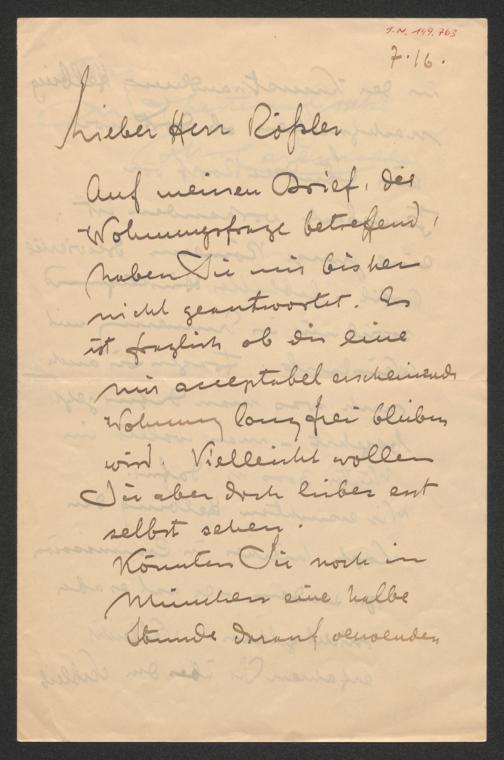 I.N. 149.763
7.16.
Lieber Herr Rößler
Auf meinen Brief, die
Wohnungsfrage betreffend,
haben Sie mir bisher
nicht geantwortet. Es
ist fraglich ob die eine
mir acceptabel erscheinende
Wohnung lang frei bleiben
wird. Vielleicht wollen
Sie aber doch lieber erst
selbst sehen.
Könnten Sie noch in
München eine halbe
Stunde darauf verwenden